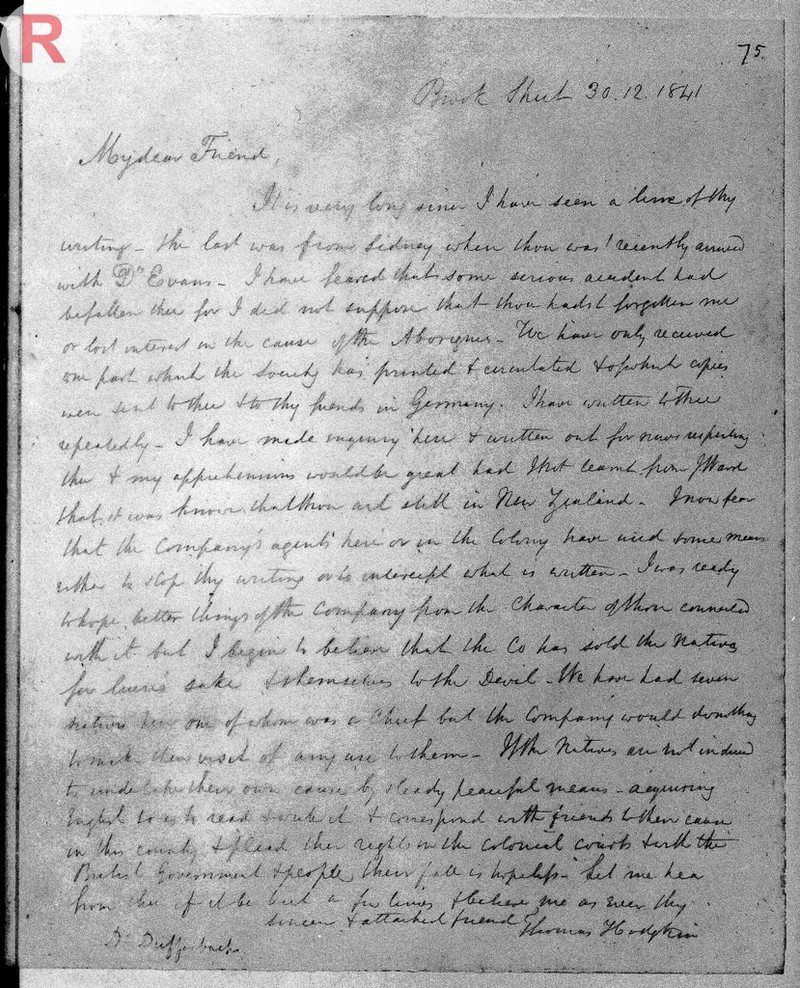 R
75.
Brook Street 30.12.1841
My dear Friend,
It is very long since I have seen a line of thy
writing - the last was from Sidney when thou was recently arrived
with Dr Evans - I have feared that some serious accident had
befallen thee for I did not suppose that thou hadst forgotten me
or lost interest in the cause of the Aborigines - We have only received
one part which the Society has printed & circulated & of which copies
were sent to thee & to thy friends in Germany. I have written to thee
repeatedly - I have made inquiry here & written out for news respecting
thee & my apprehensions would be great had I not learnt from J Ward
that it was known that thou art still in New Zealand - I now fear
that the Company's agents here or in the Colony have used some means
either to stop thy writing or to intercept what is written - I was ready
to hope better things of the Company from the Character of those connected
with it but I begin to believe that the Co has sold the Natives
for lucre's sake & themselves to the Devil - We have had seven
natives here one of whom was a Chief but the Company would do nothing
to make their visit of any use to them - If the Natives are not induced
to undertake their own cause by steady peaceful means - acquiring
English so as to read & write it & correspond with friends to their cause
in this country & plead their rights in the colonial courts & with the
British Government & people, their fate is hopeless - Let me hear
from thee if it be but a few lines & believe me as ever thy
sincere & attached friend Thomas Hodgkin
Dr Dieffenbach